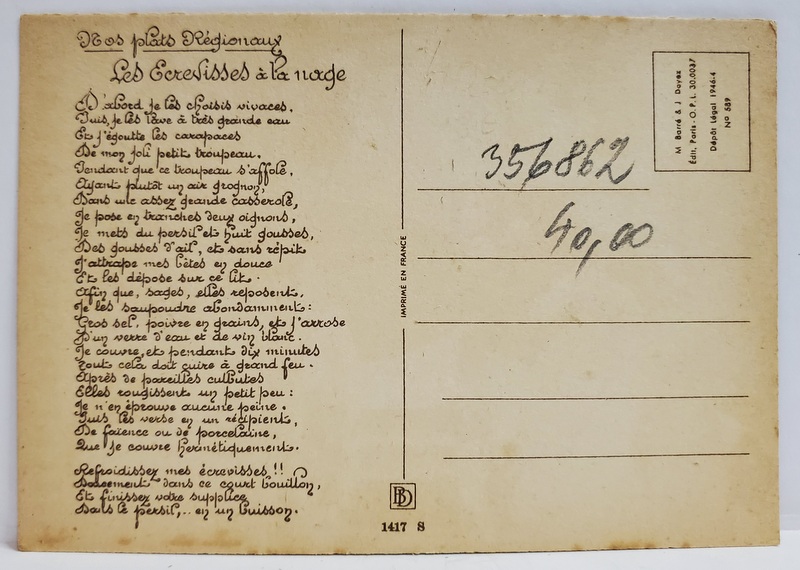 Nos plats Régionaux
Les Ecrevisses à la nage
D'abord je les choisis vivaces,
Puis, je les lave à très grande eau
Et j'égoutte les carapaces
De mon joli petit troupeau.
Pendant que ce troupeau s'affole,
Ayant plutôt un air grognon,
Dans une assez grande casserole,
Je pose en tranches deux oignons,
Je mets du persil et huit gousses,
Des gousses d'ail, et sans répit
J'attrape mes bêtes en douce
Et les dépose sur ce lit.
Afin que, sages, elles reposent,
Je les saupoudre abondamment:
Gros sel, poivre en grains, et j'arrose
D'un verre d'eau et de vin blanc.
Je couvre, et pendant dix minutes
Tout cela doit cuire à grand feu.
Après de pareilles culbutes
Elles rougissent un petit peu:
Je n'en éprouve aucune peine.
Puis les verse en un récipient,
De faïence ou de porcelaine,
Que je couvre hermétiquement.
Refroidissez mes écrevisses!!
Doucement dans ce court bouillon,
Et finissez votre supplice
Dans le persil,.. en un buisson.
IMPRIMÉ EN FRANCE
BD
1417 S
356862
40,00
M Barré & J Dayez
Édit. Paris - O.P.L. 30.0037
Dépôt Légal 1946-4
No 589